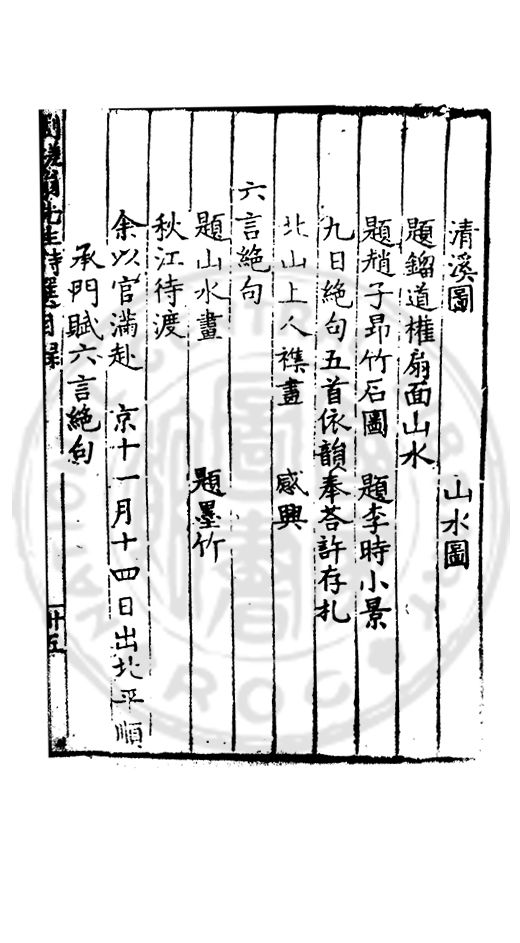 清溪圖　山水圖
題鎦道權扇面山水
題趙子昂竹石圖　題李時小景
九日絕句五首依韻奉荅許存札
北山上人襍畫　感興
六言絕句
題山水畫　題墨竹
秋江待渡
余以官滿赴　京十一月十四日出北平順
承門賦六言絕句
劉槎翁先生詩選目錄　廿五